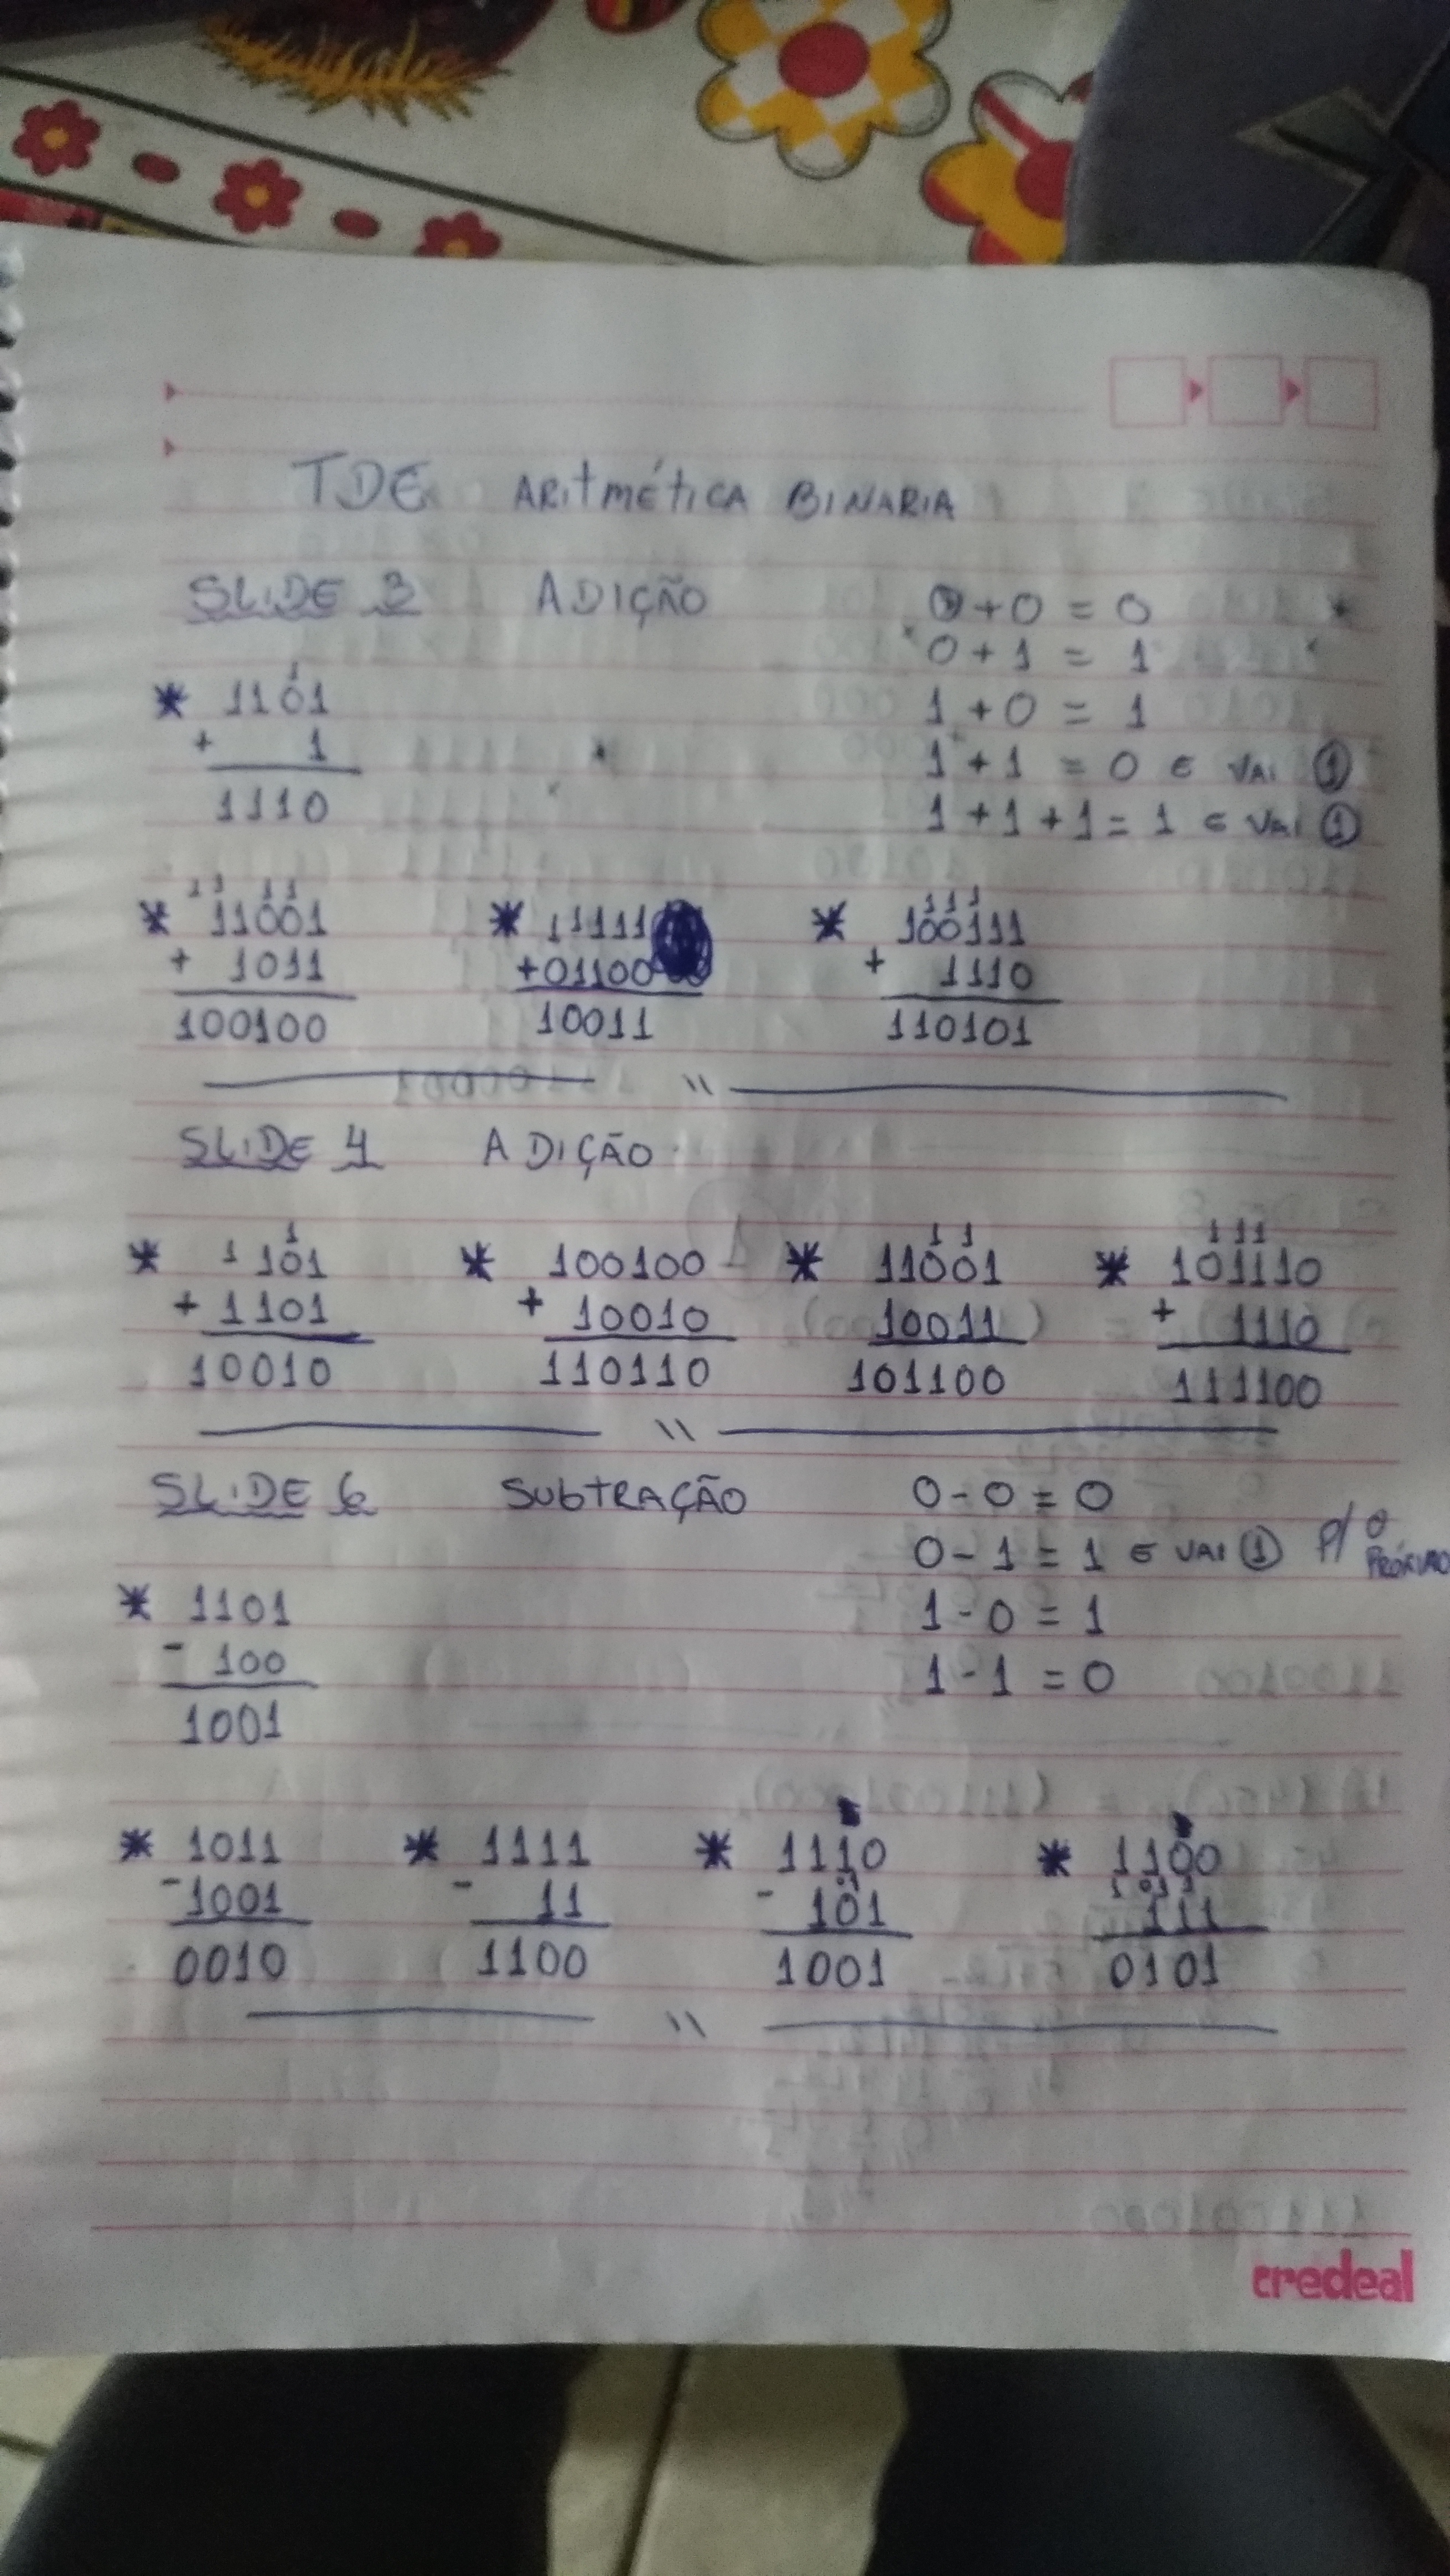 TDE ARITMÉTICA BINARIA
SLIDE 3 ADIÇÃO 0+0=0
0+1=1
1
* 1101 1+0=1
+ 1 1+1=0 E VAI 1
1110 1+1+1=1 E VAI 1
11 11 111
* 11001 * 11111 * 100111
+ 1011 +01100 + 1110
100100 10011 110101
\\
SLIDE 4 ADIÇÃO
1 11 111
* 1101 * 100100 * 11001 * 101110
+ 1101 + 10010 10011 + 1110
10010 110110 101100 111100
\\
SLIDE 6 SUBTRAÇÃO 0-0=0
0-1=1 E VAI 1 P/ O PRÓXIMO
* 1101 1-0=1
- 100 1-1=0
1001
* 1011 * 1111 * 1110 * 1100
-1001 - 11 - 101 111
0010 1100 1001 0101
\\
credeal